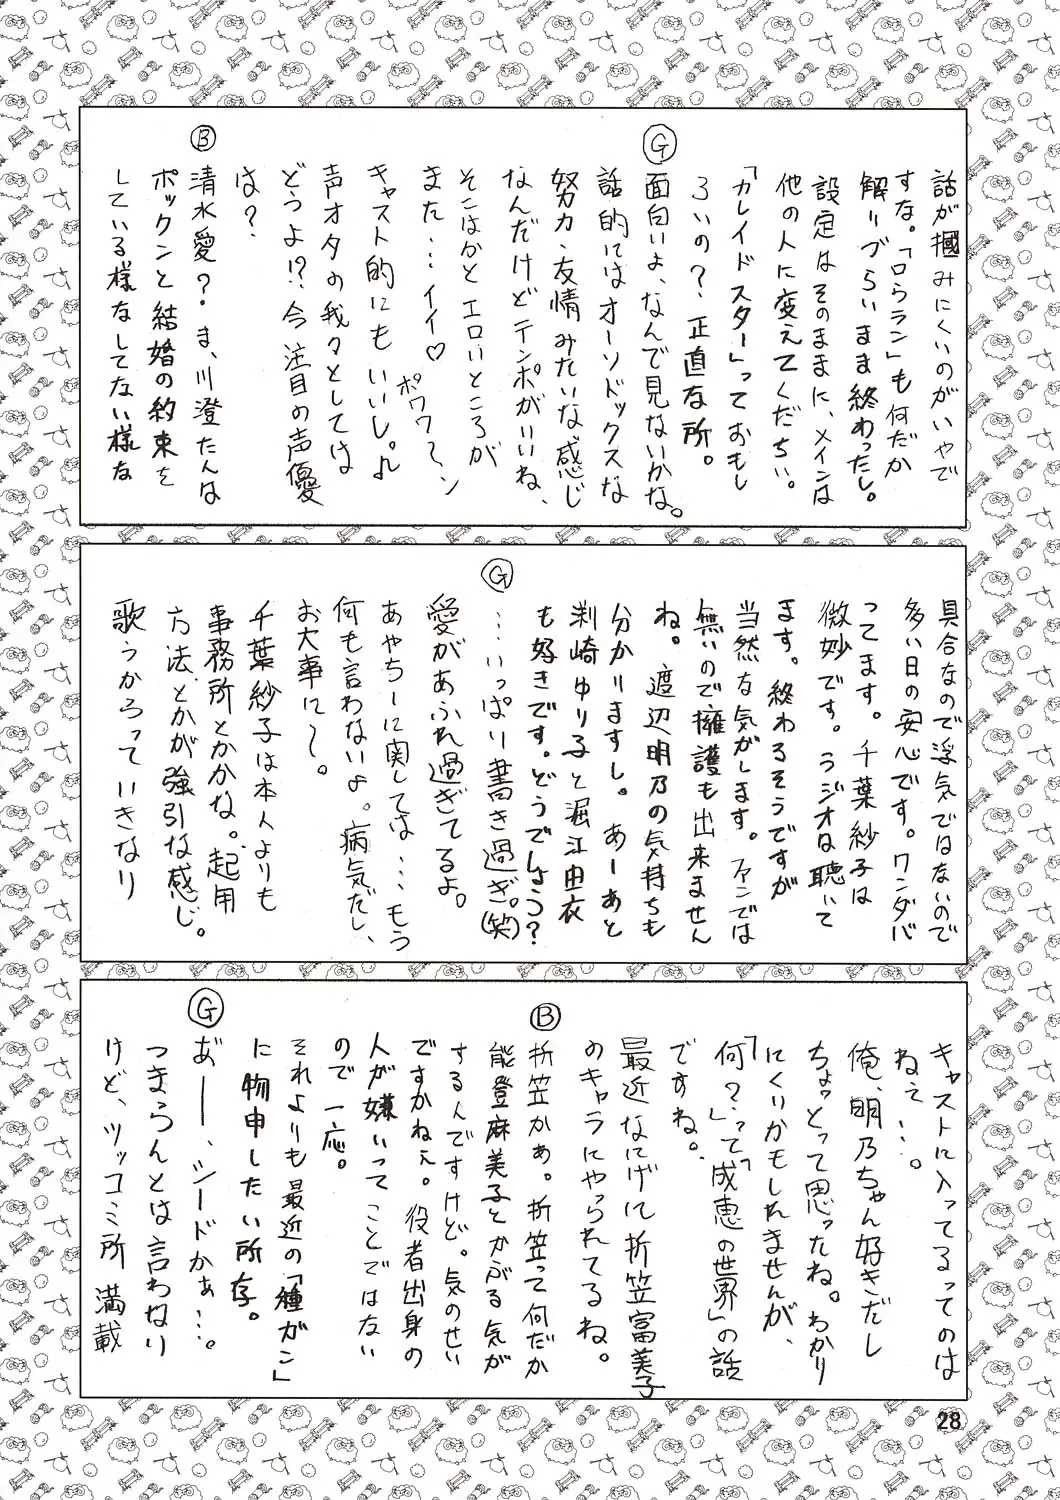 話が掴みにくいのがいやで
すな。「ロラン」も何だか
解りづらいまま終わったし。
設定はそのままに、メインは
他の人に変えてくだちい。
「カレイドスター」っておもし
ろいの?正直な所。
Ⓖ
面白いよ、なんで見ないかな。
話的にはオーソドックスな
努力・友情みたいな感じ
なんだけどテンポがいいね、
そこはかとエロいところが
また…イイ♡ポワワ~ン
キャスト的にもいいし。♪
声オタの我々としては
どうよ!?今注目の声優
は?
Ⓑ
清水愛?ま、川澄たんは
ポックンと結婚の約束を
している様なしてない様な
具合なので浮気ではないので
多い日の安心です。ワンダバ
ってます。千葉紗子は
微妙です。ラジオは聴いて
ます。終わるそうですが
当然な気がします。ファンでは
無いので擁護も出来ません
ね。渡辺明乃の気持ちも
分かりますし。あーあと
刹崎ゆり子と堀江由衣
も好きです。どうでしょう?
Ⓖ
…いっぱい書き過ぎ。(笑)
愛があふれ過ぎてるよ。
あやちーに関しては…もう
何も言わないよ。病気だし、
お大事に~。
千葉紗子は本人よりも
事務所とかかな。起用
方法とかが強引な感じ。
歌うからっていきなり
キャストに入ってるってのは
ねぇ…。
俺、明乃ちゃん好きだし
ちょっとって思ったね。わかり
にくいかもしれませんが、
「何?」って「成恵の世界」の話
ですね。
最近なにげに折笠富美子
のキャラにやられてるね。
Ⓑ
折笠かぁ。折笠って何だか
能登麻美子とかぶる気が
するんですけど。気のせい
ですかねぇ。役者出身の
人が嫌いってことではない
ので一応。
それよりも最近の「種ガン」
に物申したい所存。
Ⓖ
あ゛ー、シードかぁ…。
つまらんとは言わない
けど、ツッコミ所満載
28